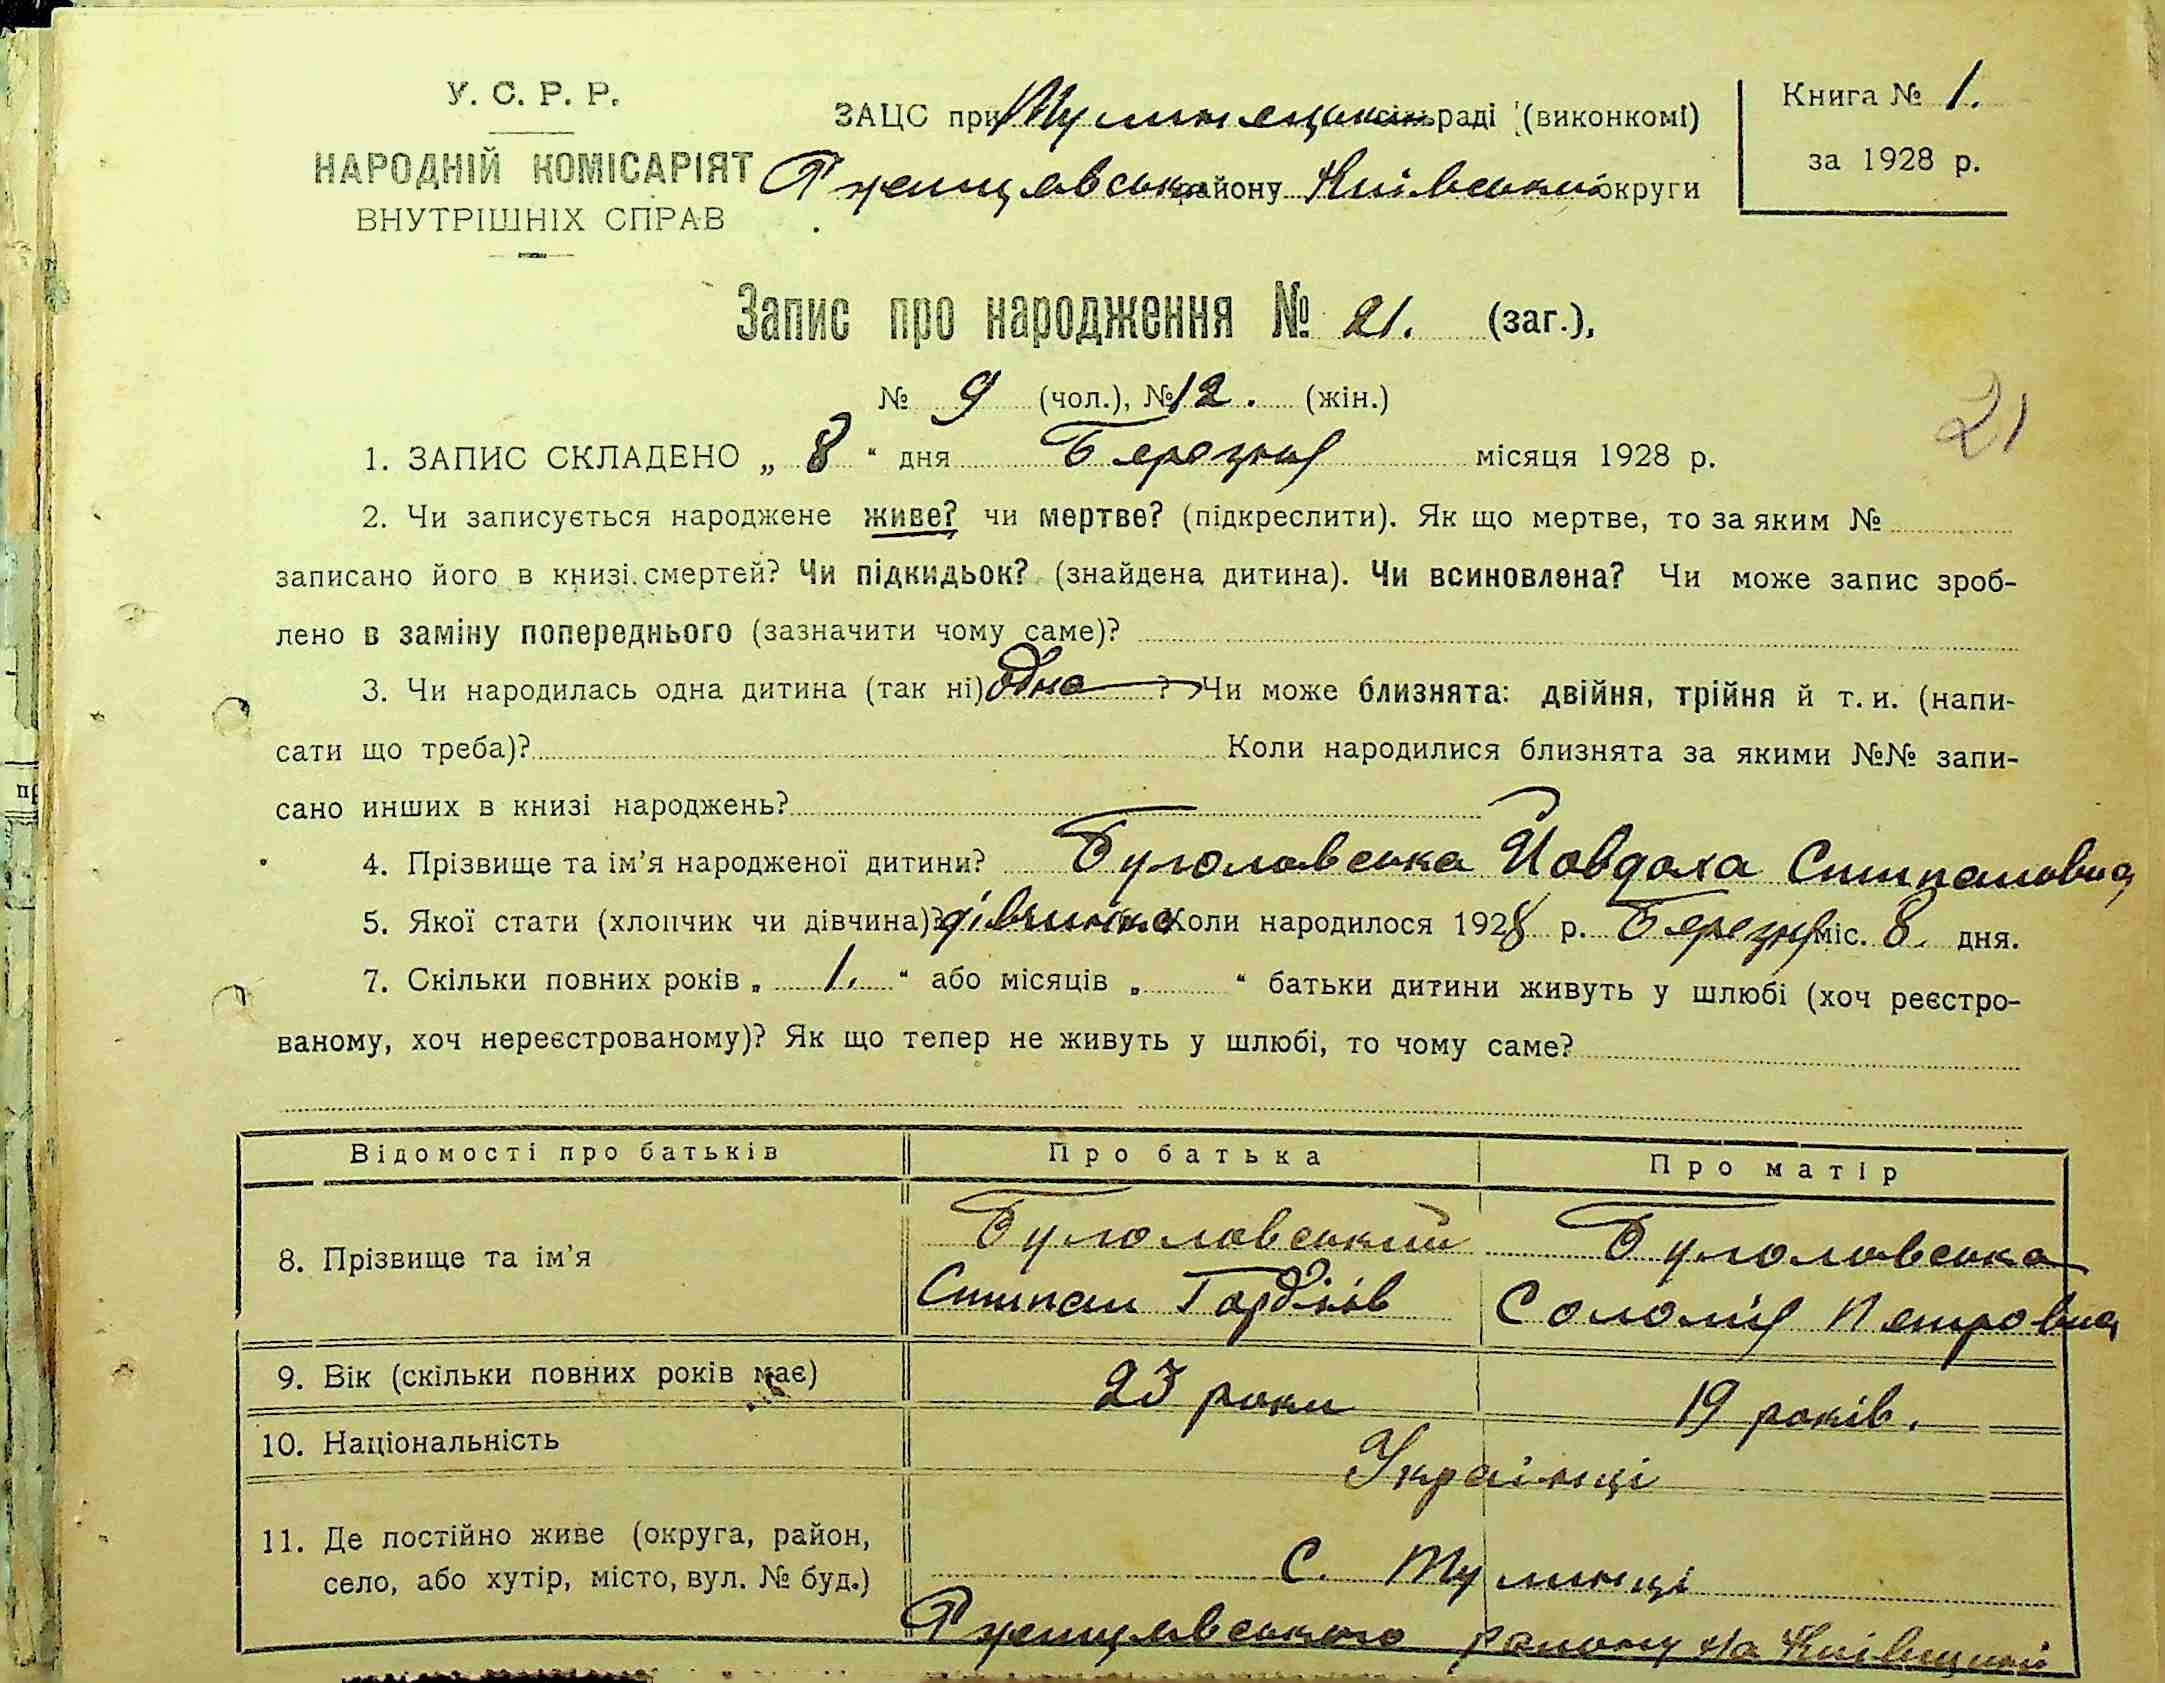 У. С. Р. Р.
НАРОДНІЙ КОМІСАРІЯТ
ВНУТРІШНІХ СПРАВ
ЗАЦС при Тулинецькій сільраді (виконкомі)
Ржищівського району Київської округи
Книга № 1.
за 1928 р.
Запис про народження № 21. (заг.),
№ 9 (чол.), № 12. (жін.)
21
1. ЗАПИС СКЛАДЕНО „ 8 “ дня Березня місяця 1928 р.
2. Чи записується народжене живе? чи мертве? (підкреслити). Як що мертве, то за яким №
записано його в книзі смертей? Чи підкидьок? (знайдена дитина). Чи всиновлена? Чи може запис зроб-
лено в заміну попереднього (зазначити чому саме)?
3. Чи народилась одна дитина (так ні) одна ? Чи може близнята: двійня, трійня й т. и. (напи-
сати що треба)? Коли народилися близнята за якими №№ запи-
сано инших в книзі народжень?
4. Прізвище та ім’я народженої дитини? Буголовська Йовдоха Степановна
5. Якої стати (хлопчик чи дівчина)? дівчинка Коли народилося 1928 р. Березня міс. 8. дня.
7. Скільки повних років „ 1. “ або місяців „ “ батьки дитини живуть у шлюбі (хоч реєстро-
ваному, хоч нереєстрованому)? Як що тепер не живуть у шлюбі, то чому саме?
Відомості про батьків Про батька Про матір
8. Прізвище та ім’я
Буголовський Буголовська
Степан Гордіїв Соломія Петровна
9. Вік (скільки повних років має) 23 роки 19 років.
10. Національність Українці
11. Де постійно живе (округа, район,
село, або хутір, місто, вул. № буд.)
С. Тулинці
Ржищевського району на Київщині